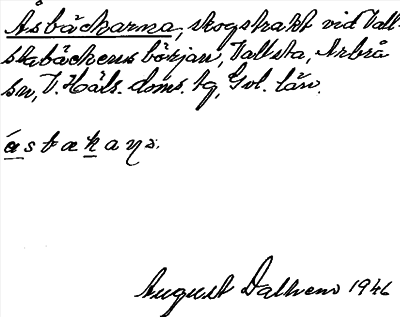 Åsbäckarna, skogstrakt vid Vall-
stabäckens början, Vallsta, Arbrå
sn, V. Häls. doms. tg, Gvl. län.
åsbækaṇa.
August Dalhem 1946